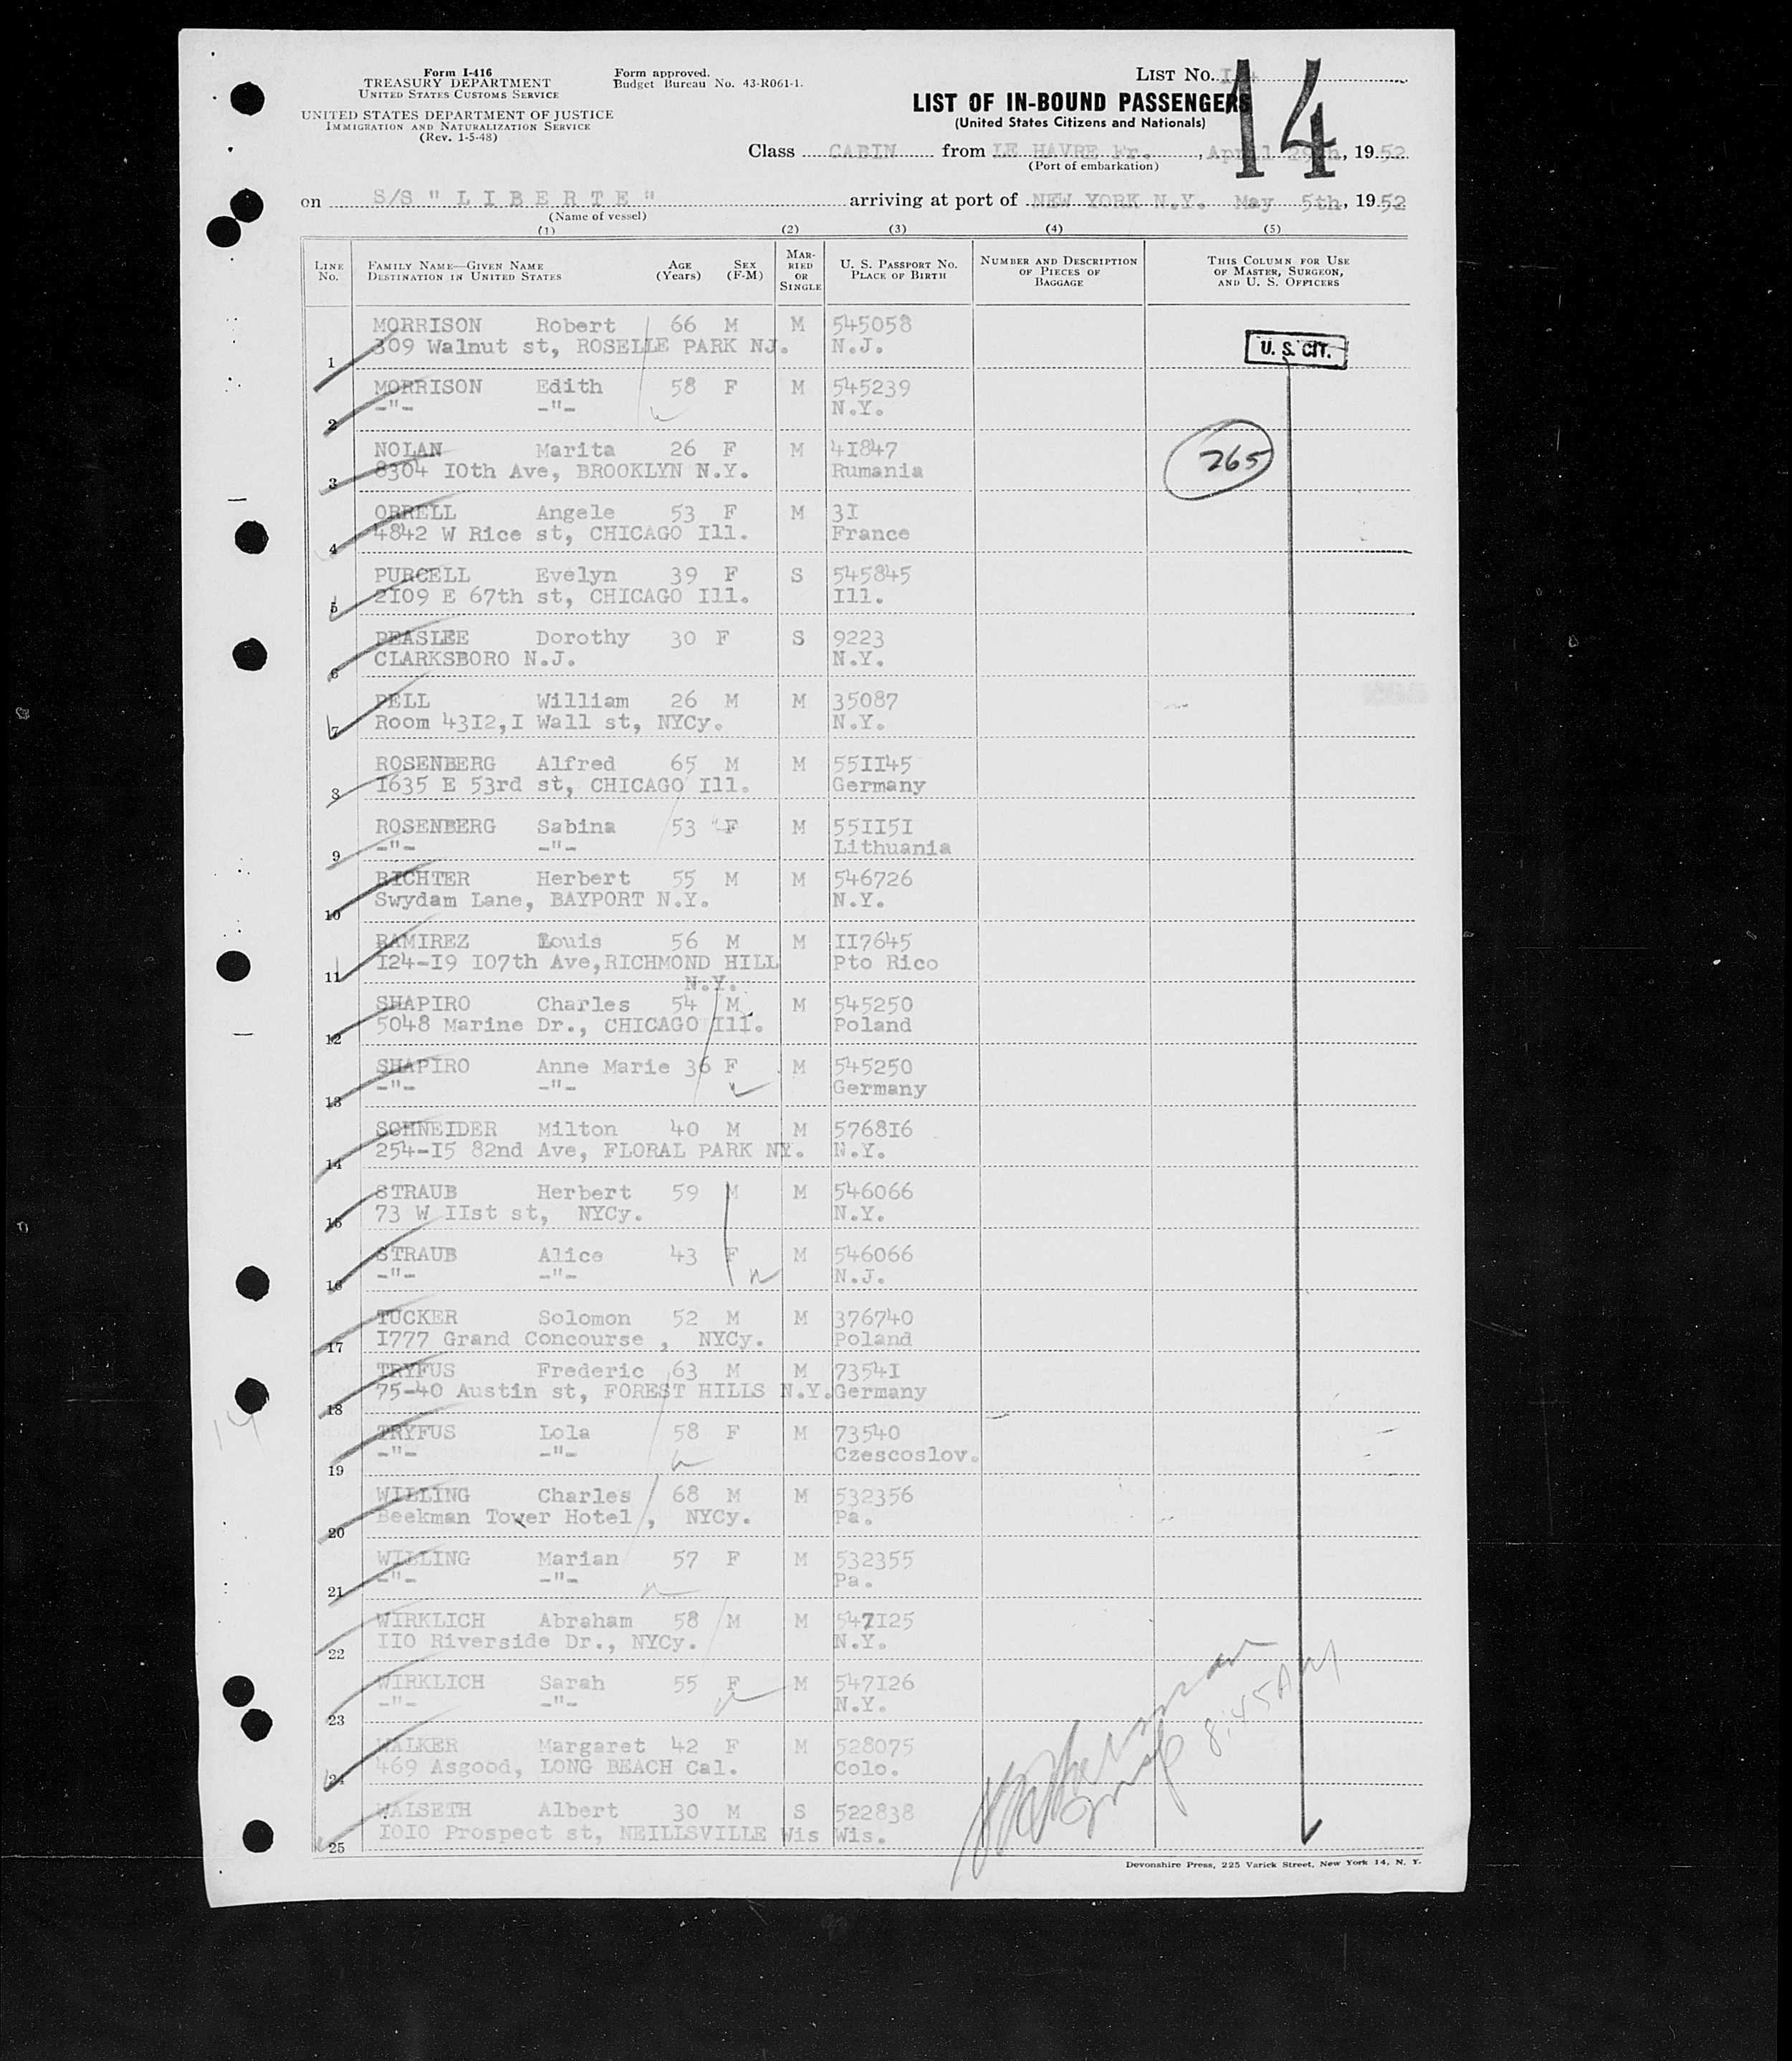 Form I-416
TREASURY DEPARTMENT
UNITED STATES CUSTOMS SERVICE
UNITED STATES DEPARTMENT OF JUSTICE
IMMIGRATION AND NATURALIZATION SERVICE
(Rev. 1-5-48)
Form approved.
Budget Bureau No. 43-R061-1.
LIST No.
14
LIST OF IN-BOUND PASSENGERS
(United States Citizens and Nationals)
Class CABIN from LE HAVRE Fr., April 29th, 1952
(Port of embarkation)
on S/S " L I B E R T E " arriving at port of NEW YORK N.Y. May 5th, 1952
(Name of vessel)
(1) (2) (3) (4) (5)
LINE No. FAMILY NAME—GIVEN NAME DESTINATION IN UNITED STATES AGE (Years) SEX (F-M) MARRIED OR SINGLE U. S. PASSPORT NO. PLACE OF BIRTH NUMBER AND DESCRIPTION OF PIECES OF BAGGAGE THIS COLUMN FOR USE OF MASTER, SURGEON, AND U. S. OFFICERS
MORRISON Robert 66 M M 545058
1 309 Walnut st, ROSELLE PARK NJ. N.J.
U. S. CIT.
MORRISON Edith 58 F M 545239
2 -"- -"- N.Y.
NOLAN Marita 26 F M 4I847
3 8304 I0th Ave, BROOKLYN N.Y. Rumania
265
ORRELL Angele 53 F M 3I
4 4842 W Rice st, CHICAGO Ill. France
PURCELL Evelyn 39 F S 545845
5 2I09 E 67th st, CHICAGO Ill. Ill.
PEASLEE Dorothy 30 F S 9223
6 CLARKSBORO N.J. N.Y.
PELL William 26 M M 35087
7 Room 43I2,I Wall st, NYCy. N.Y.
ROSENBERG Alfred 65 M M 55II45
8 I635 E 53rd st, CHICAGO Ill. Germany
ROSENBERG Sabina 53 F M 55II5I
9 -"- -"- Lithuania
RICHTER Herbert 55 M M 546726
10 Swydam Lane, BAYPORT N.Y. N.Y.
RAMIREZ Louis 56 M M II7645
11 I24-I9 I07th Ave,RICHMOND HILL Pto Rico
N.Y.
SHAPIRO Charles 54 M M 545250
12 5048 Marine Dr., CHICAGO Ill. Poland
SHAPIRO Anne Marie 36 F M 545250
13 -"- -"- Germany
SCHNEIDER Milton 40 M M 5768I6
14 254-I5 82nd Ave, FLORAL PARK NY. N.Y.
STRAUB Herbert 59 M M 546066
15 73 W IIst st, NYCy. N.Y.
STRAUB Alice 43 F M 546066
16 -"- -"- N.J.
TUCKER Solomon 52 M M 376740
17 I777 Grand Concourse , NYCy. Poland
TRYFUS Frederic 63 M M 7354I
18 75-40 Austin st, FOREST HILLS N.Y. Germany
TRYFUS Lola 58 F M 73540
19 -"- -"- Czescoslov.
14
WILLING Charles 68 M M 532356
20 Beekman Tower Hotel , NYCy. Pa.
WILLING Marian 57 F M 532355
21 -"- -"- Pa.
WIRKLICH Abraham 58 M M 547I25
22 II0 Riverside Dr., NYCy. N.Y.
WIRKLICH Sarah 55 F M 547I26
23 -"- -"- N.Y.
WALKER Margaret 42 F M 528075
24 469 Asgood, LONG BEACH Cal. Colo.
8:45AM
WALSETH Albert 30 M S 522838
25 I0I0 Prospect st, NEILLSVILLE Wis Wis.
Devonshire Press, 225 Varick Street, New York 14, N. Y.